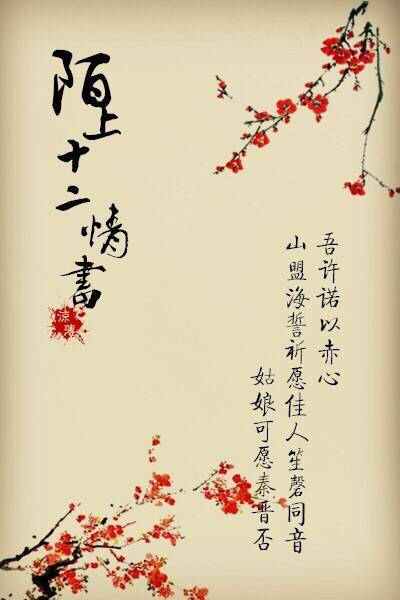 陌上十二情書
涼薄
吾许诺以赤心
山盟海誓祈愿佳人笙磬同音
姑娘可愿秦晋否